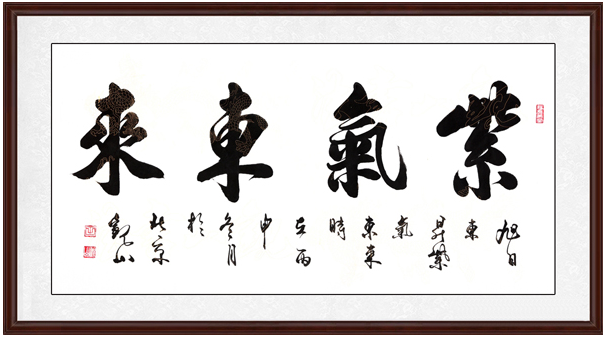 紫氣東來
旭日
東
昇紫
氣
東来
時
在丙
申
冬月
於
北京
山